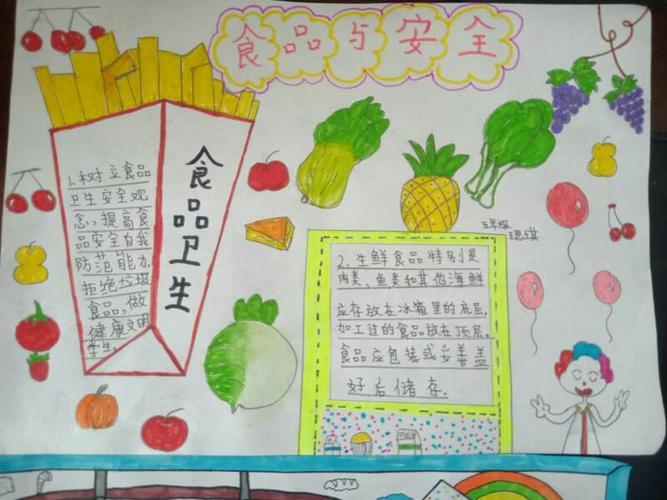 食品与安全
1.树立食品
卫生安全观
念,提高食
品安全自我
防范能力,
拒绝垃圾
食品,做
健康文明
学生.
食品卫生
五年级
2.生鲜食品特别是
肉类、鱼类和其他海鲜
应存放在冰箱里的底层.
加工过的食品放在顶层.
食品应包装或妥善盖
好后储存.